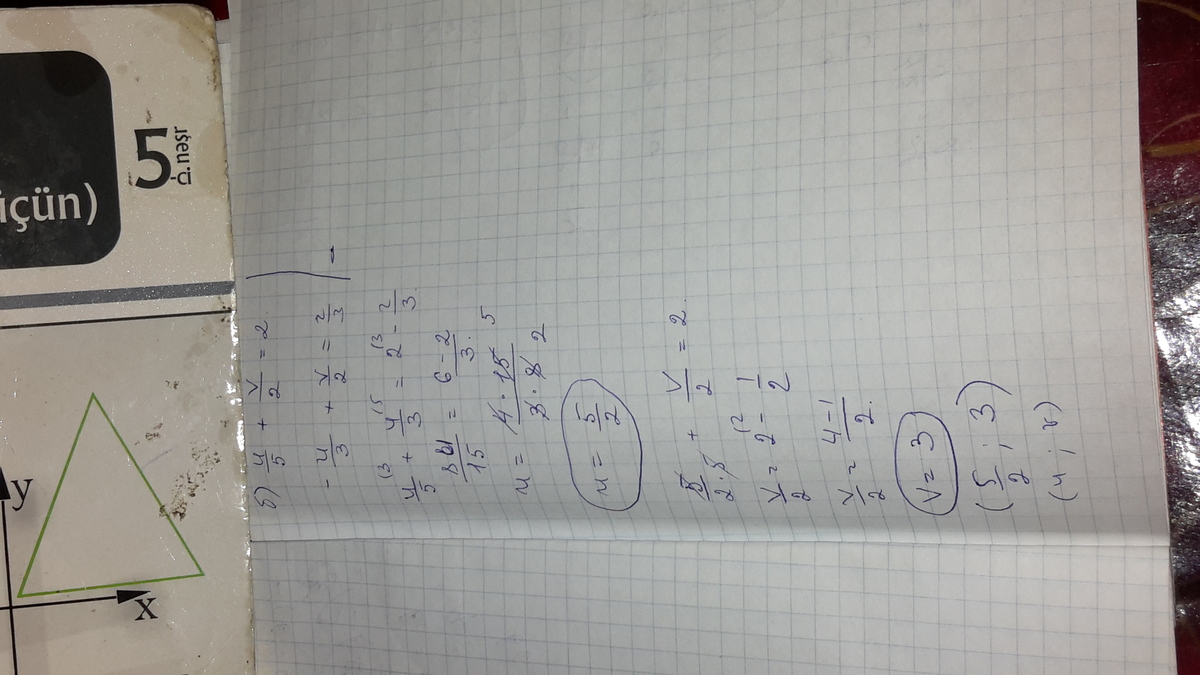 içün)
5
-ci nəşr
y
x
б) u/5 + v/2 = 2
- u/3 + v/2 = 2/3
-
u/5 + u/3 = 2 - 2/3
8u/15 = 6-2/3
u = 4·15/3·8 5/2
u = 5/2
5/2·5 + v/2 = 2
v/2 = 2 - 1/2
v/2 = 4-1/2
v = 3
(5/2 ; 3)
(u ; v)